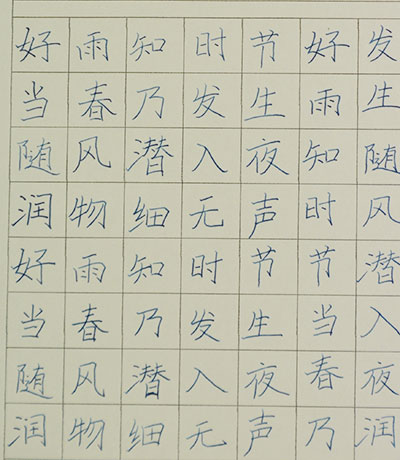 好雨知时节好发
当春乃发生雨生
随风潜入夜知随
润物细无声时风
好雨知时节节潜
当春乃发生当入
随风潜入夜春夜
润物细无声乃润